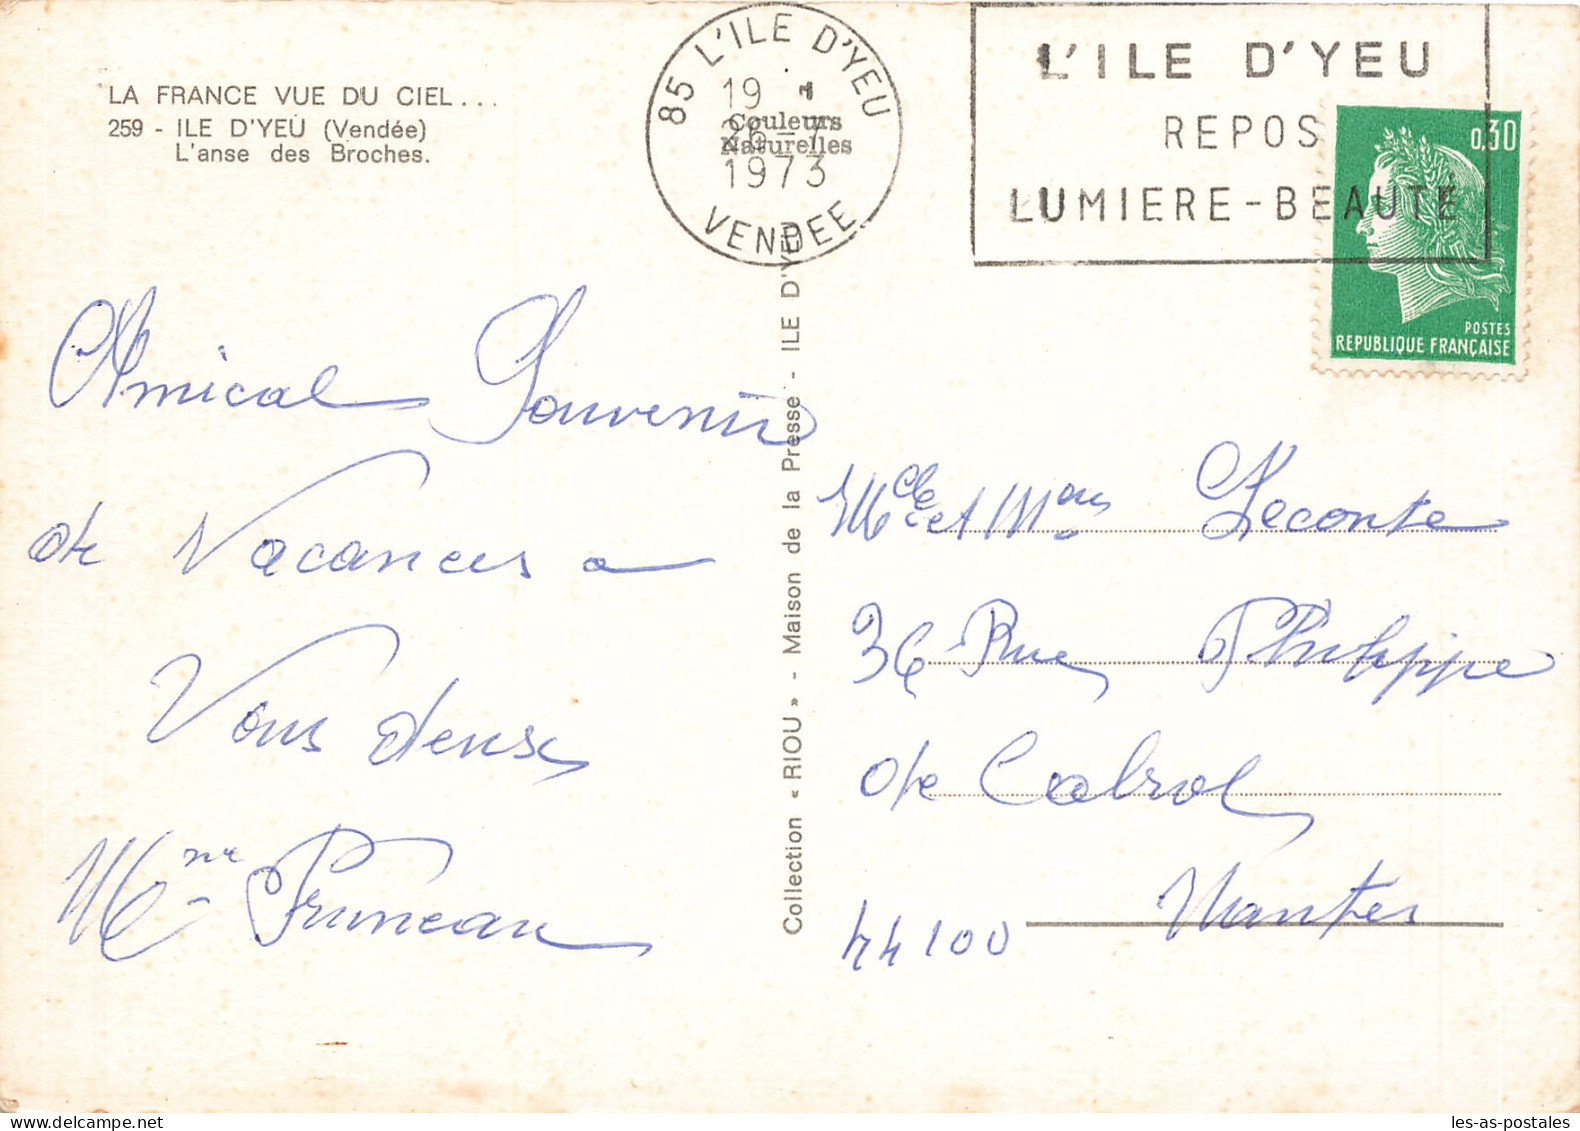 LA FRANCE VUE DU CIEL...
259 - ILE D'YEU (Vendée)
L'anse des Broches.
85 L'ILE D'YEU
19
26 - 7
1973
VENDEE
Couleurs
Naturelles
L'ILE D'YEU
REPOS
LUMIERE-BEAUTÉ
0,30
POSTES
REPUBLIQUE FRANÇAISE
Amical Souvenir
de Vacances a
Vous deux
Mme Pruneau
Collection « RIOU » - Maison de la Presse - ILE D'YEU
et Leconte
36 Rue Philippe
de Cabrol
44100 Nantes
les-as-postales